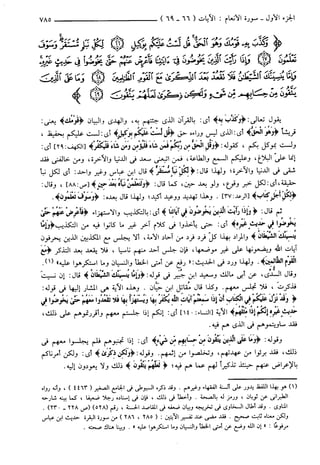 الجزء الأول ـ سورة الأنعام : الآيات ( ٦٦ ـ ٦٩ ) ٧٨٥
﴿ وَكَذَّبَ بِهِ قَوْمُكَ وَهُوَ الْحَقُّ قُل لَّسْتُ عَلَيْكُم بِوَكِيلٍ ﴿٦٦﴾ لِّكُلِّ نَبَإٍ مُّسْتَقَرٌّ وَسَوْفَ
تَعْلَمُونَ ﴿٦٧﴾ وَإِذَا رَأَيْتَ الَّذِينَ يَخُوضُونَ فِي آيَاتِنَا فَأَعْرِضْ عَنْهُمْ حَتَّى يَخُوضُوا فِي حَدِيثٍ غَيْرِهِ
وَإِمَّا يُنسِيَنَّكَ الشَّيْطَانُ فَلَا تَقْعُدْ بَعْدَ الذِّكْرَى مَعَ الْقَوْمِ الظَّالِمِينَ ﴿٦٨﴾ وَمَا عَلَى الَّذِينَ
يَتَّقُونَ مِنْ حِسَابِهِم مِّن شَيْءٍ وَلَكِن ذِكْرَى لَعَلَّهُمْ يَتَّقُونَ ﴿٦٩﴾
يقول تعالى: ﴿وكذب به﴾ أي: بالقرآن الذي جئتهم به، والهدى والبيان ﴿قومك﴾ يعني:
قريشاً ﴿وهو الحق﴾ أي: الذي ليس وراءه حق ﴿قل لست عليكم بوكيل﴾ أي: لست عليكم بحفيظ ،
ولست بموكل بكم ، كقوله: ﴿وقل الحق من ربكم فمن شاء فليؤمن ومن شاء فليكفر﴾ [الكهف: ٢٩] أي:
إنما عليّ البلاغ، وعليكم السمع والطاعة، فمن اتبعني سعد في الدنيا والآخرة، ومن خالفني فقد
شقي في الدنيا والآخرة؛ ولهذا قال: ﴿لكل نبإ مستقر﴾ قال ابن عباس وغير واحد: أي لكل نبأ
حقيقة، أي: لكل خبر وقوع، ولو بعد حين، كما قال: ﴿ولتعلمن نبأه بعد حين﴾ [ص: ٨٨] ، وقال:
﴿لكل أجل كتاب﴾ [الرعد: ٣٨]. وهذا تهديد ووعيد أكيد؛ ولهذا قال بعده: ﴿وسوف تعلمون﴾ .
ثم قال: ﴿وإذا رأيت الذين يخوضون في آياتنا﴾ أي: بالتكذيب والاستهزاء ﴿فأعرض عنهم حتى
يخوضوا في حديث غيره﴾ أي: حتى يأخذوا في كلام آخر غير ما كانوا فيه من التكذيب ﴿وإما
ينسينك الشيطان﴾ والمراد بهذا كلّ فرد فرد من آحاد الأمة، ألا يجلس مع المكذبين الذين يحرفون
آيات الله ويضعونها على غير مواضعها، فإن جلس أحد منهم ناسياً ، فلا يقعد بعد التذكر ﴿مع
القوم الظالمين﴾ . ولهذا ورد في الحديث: « رفع عن أمتي الخطأ والنسيان وما استكرهوا عليه » (١).
وقال السدّي، عن أبي مالك وسعيد ابن جبير في قوله: ﴿وإما ينسينك الشيطان﴾ قال: إن نسيت
فذكرت ، فلا تجلس معهم. وكذا قال مقاتل ابن حيّان . وهذه الآية هي المشار إليها في قوله:
﴿وقد نزل عليكم في الكتاب أن إذا سمعتم آيات الله يكفر بها ويستهزأ بها فلا تقعدوا معهم حتى يخوضوا في
حديث غيره إنكم إذا مثلهم﴾ الآية [النساء: ١٤٠] أي: إنكم إذا جلستم معهم وأقررتموهم على ذلك،
فقد ساويتموهم في الذي هم فيه.
وقوله: ﴿وما على الذين يتقون من حسابهم من شيء﴾ أي: إذا تجنبوهم فلم يجلسوا معهم في
ذلك، فقد برئوا من عهدتهم، وتخلصوا من إثمهم. وقوله: ﴿ولكن ذكرى﴾ أي: ولكن أمرناكم
بالإعراض عنهم حينئذ تذكيراً لهم عما هم فيه؛ ﴿لعلهم يتقون﴾ ذلك ولا يعودون إليه.
(١) هو بهذا اللفظ يدور على ألسنة الفقهاء وغيرهم . وقد ذكره السيوطي في الجامع الصغير ( ٤٤٦٣ ) ، وأنه رواه
الطبراني عن ثوبان ، ورمز له بالصحة . وأخطأ في ذلك ، فإن في إسناده رجلاً ضعيفاً ، كما بينه شارحه
المناوي . وقد أطال السخاوي في تخريجه وبيان ضعفه في المقاصد الحسنة ، رقم (٥٢٨) (ص ٢٢٨ ـ ٢٣٠) .
ولكن معناه ثابت صحيح . فقد مضى عند تفسير الآيتين : ( ٢٨٥ ، ٢٨٦ ) من سورة البقرة حديث ابن عباس
مرفوعاً : « إن الله وضع عن أمتي الخطأ والنسيان وما استكرهوا عليه » . وبينا هناك صحته .